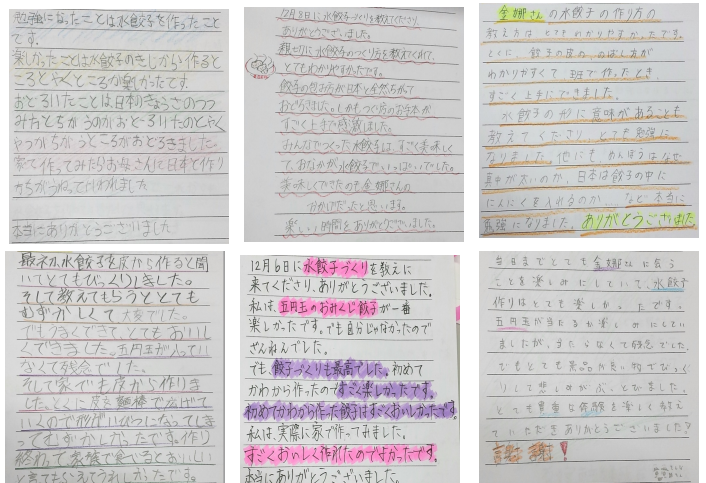 勉強になったことは水餃子を作ったこと
です。
楽しかったことは水餃子のきじから作ると
ころとやくところが楽しかったです。
おどろいたことは日本のぎょうざのつつ
みかたとちがうのがおどろいたのとやく
家で作ってみたらお母さんに日本と作り
本当にありがとうございました
12月8日に水餃子づくりを教えてくださり、
ありがとうございました。
親切に水餃子のつくり方を教えてくれて、
とてもわかりやすかったです。
餃子の包み方が日本と全然ちがって
おどろきました。しかも、つつみ方のお手本が
すごく上手で感動しました。
みんなでつくった水餃子は、すごく美味しく
て、おなかが水餃子でいっぱいでした。
美味しくできたのも金娜さんの
おかげだったと思います。
楽しい時間をありがとうございました。
金娜さんの水餃子の作り方の
教え方は、とてもわかりやすかったです。
とくに、餃子の皮の、のばし方が
わかりやすくて、班で作ったとき、
すごく上手にできました。
水餃子の形に意味があることも
教えてくださり、とても勉強に
なりました。他にも、めんぼうはなぜ
真中が太いのか、日本は餃子の中に
にんにくを入れるのか…など本当に
勉強になりました。ありがとうございました
最初、水餃子を皮から作ると聞
いてとてもびっくりしました。
そして教えてもらうととても
むずかしくて大変でした。
でもうまくできて、とてもおいし
くできました。五円玉が入ってい
なくて残念でした。
そして家でも皮から作りま
した。とくに皮を麺棒で広げて
いくので形がいびつになってしま
ってむずかしかったです。作り
終わって家族で食べるとおいしい
12月6日に水餃子づくりを教えに
来てくださり、ありがとうございました。
私は、五円玉のおみくじ餃子が一番
楽しかったです。でも自分じゃなかったので
ざんねんでした。
でも、餃子づくりも最高でした。初めて
かわから作ったのですごく楽しかったです。
初めてかわから作った餃子はすごくおいしかったです。
私は、実際に家で作ってみました。
すごくおいしく作れたのでよかったです。
本当にありがとうございました。
当日までとても金娜さんに会う
ことを楽しみにしていて、水餃子
作りはとても楽しかったです。
五円玉が当たるか楽しみにしてい
ましたが、またらなくて残念でした。
でもとても景品が良い物でびっく
りして悲しみがふっとびました。
とても貴重な体験を楽しく教え
ていただきありがとうございました?
謝謝!